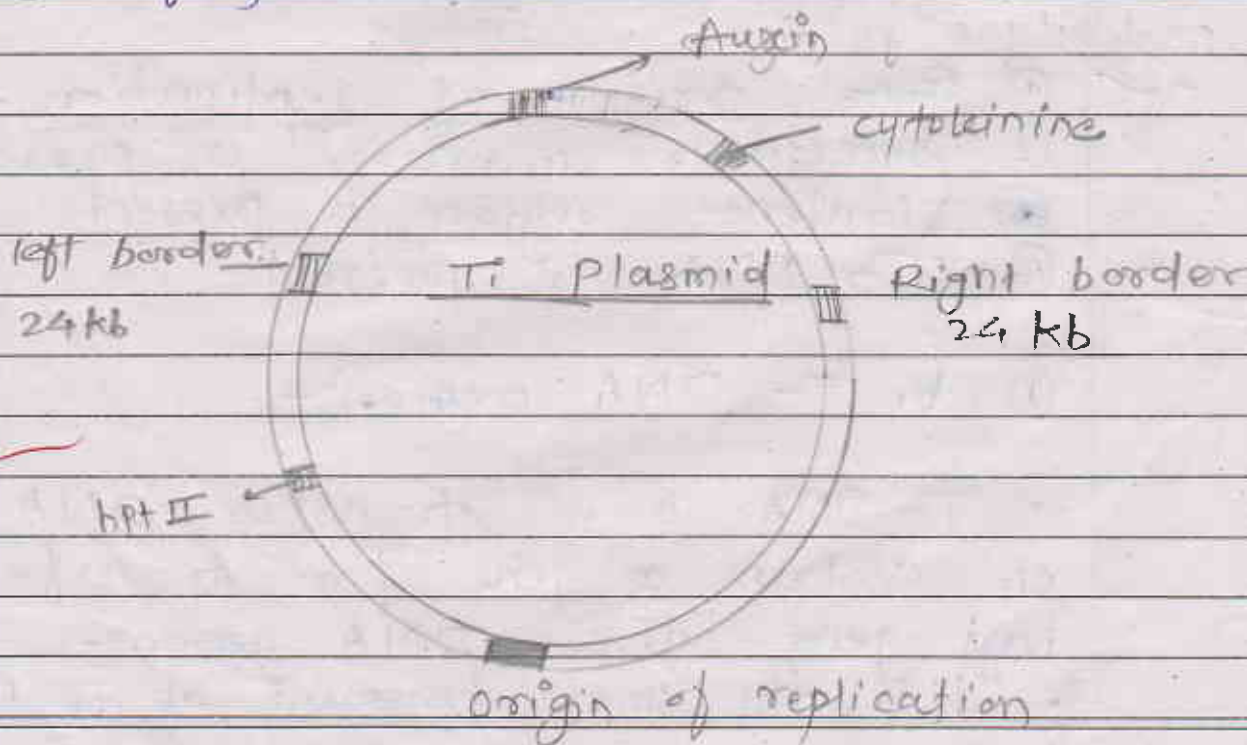 Auxin
cytokinine
left border
24 kb
Ti Plasmid
Right border
24 kb
hpt II
origin of replication